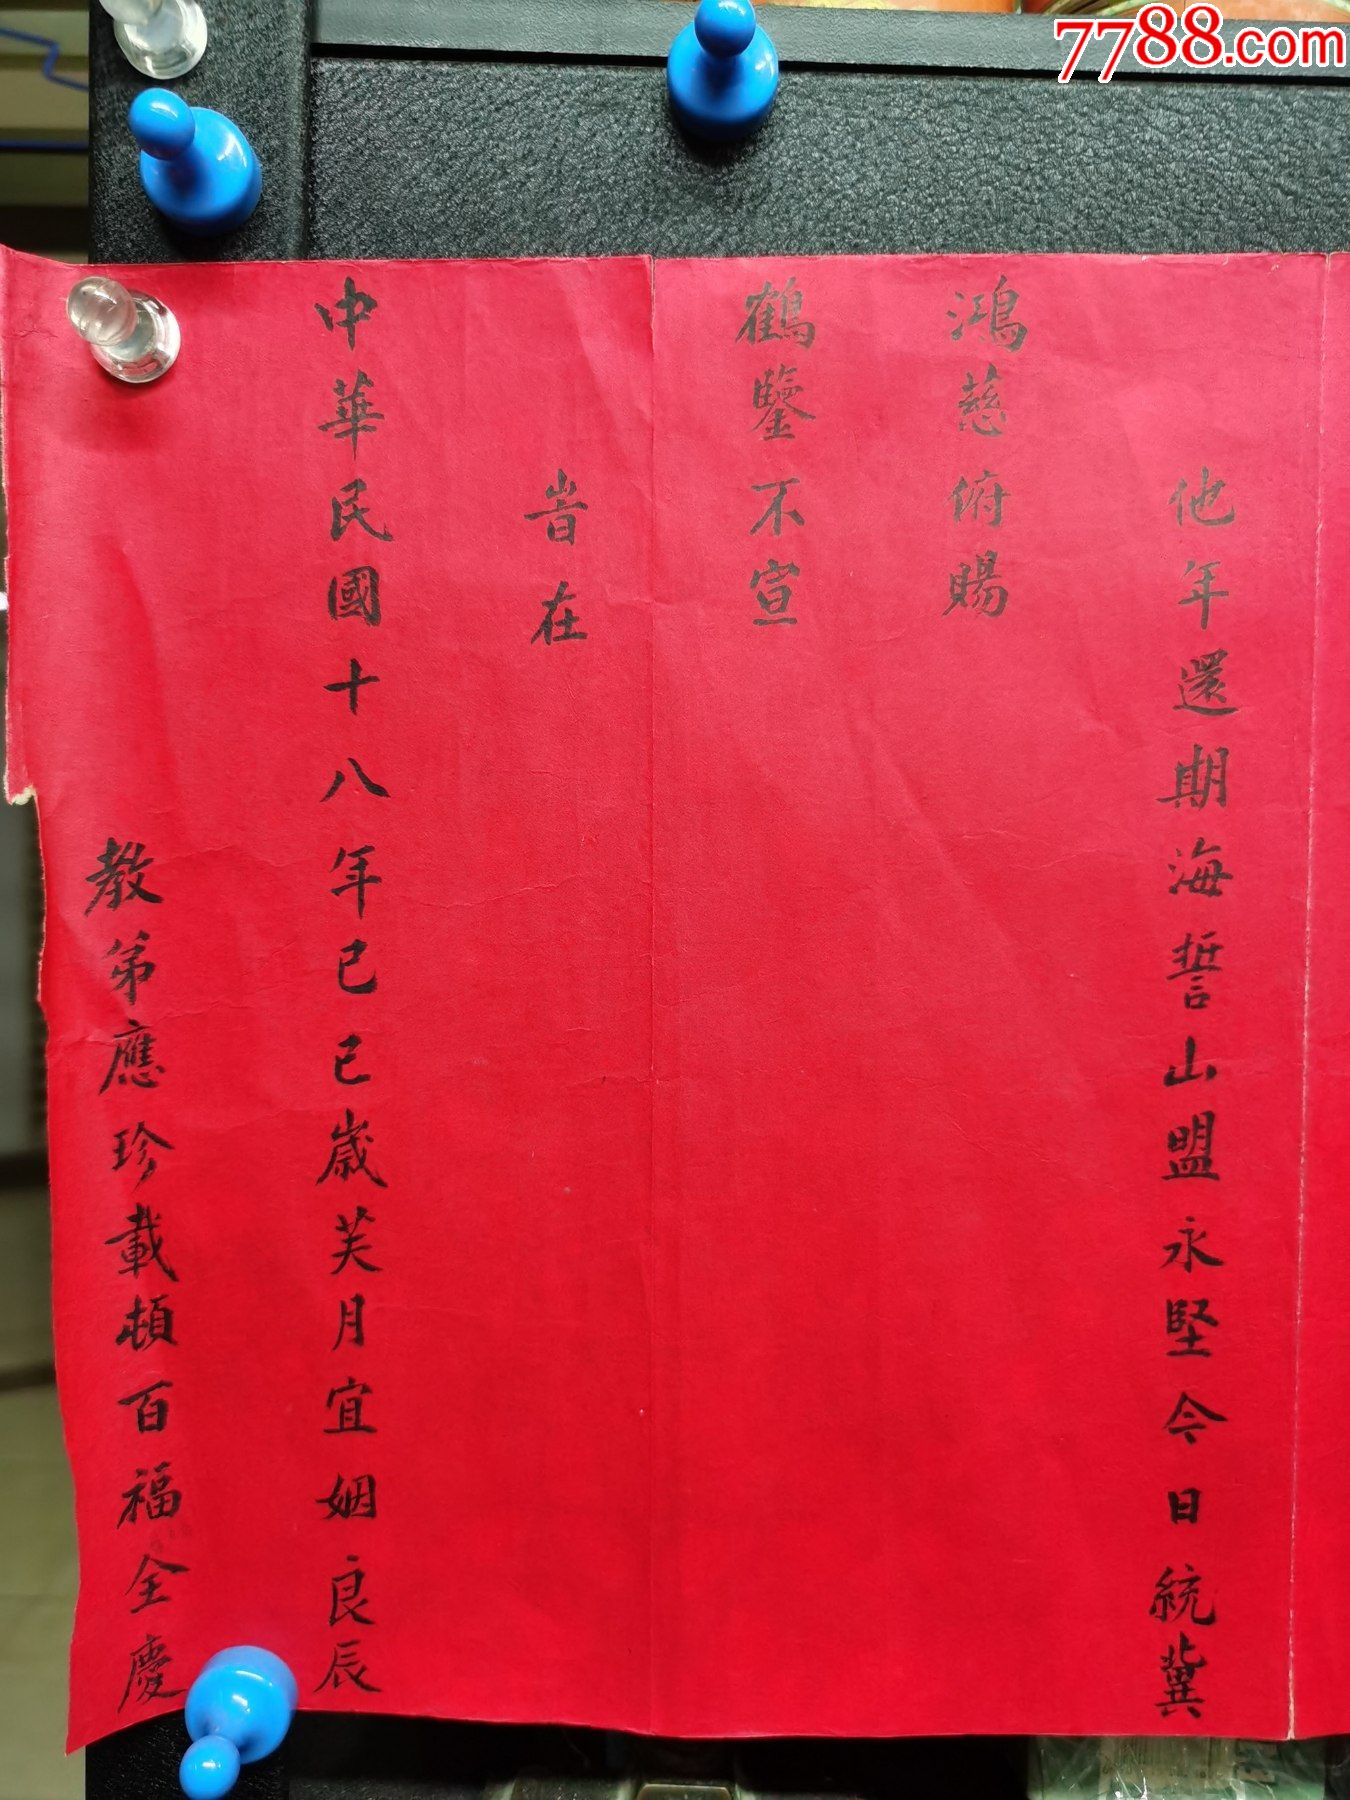 7788.com
他年還期海誓山盟永堅今日統冀
鴻慈俯賜
鶴鑒不宣
旹在
中華民國十八年己巳歲芙月宜姻良辰
教弟應珍載頓百福全慶